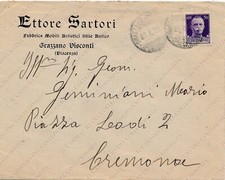 Ettore Sartori
Fabbrica Mobili Artistici Stile Antico
Grazzano Visconti
(Piacenza)
Geom.
Geminiani Mario
Piazza Lodi 2
Cremona